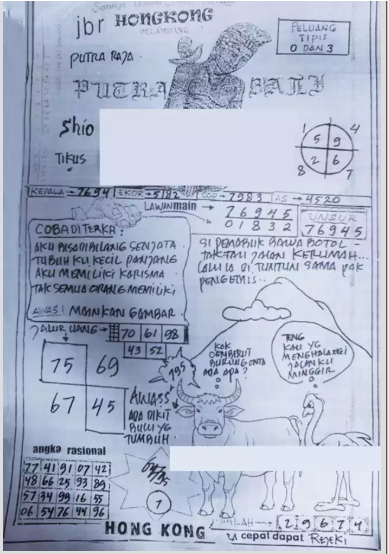 jbr HONGKONG
PUTRA RAJA
PELUANG
TIPIS
0 DAN 3
PUTRA BALI
Shio
TIKUS
1 4
5 9
2 6
8 7
KEPALA → 7694 EKOR → 5182 COP → 7983 AS → 4520
LAWAN main → 76945
01832
UNSUR
76945
COBA DITERKA :
AKU BISA DIBILANG SENJATA
TUBUH KU KECIL PANJANG
AKU MEMILIKI KARISMA
TAK SEMUA ORANG MEMILIKI
AWAS! MAINKAN GAMBAR
SI PEMABUK BAWA BOTOL -
TAK TAU JALAN KERUMAH...
LALU IA DI TUNTUN SAMA PAK
PENGEMIS...
JALUR UANG → 70 61 98
43 52
75 69
67 45
195
KOK
CEMBERUT
BURUNG ONTA
ADA APA?
TENG
KAU YG
MENGHALANGI
JALAN KU
MINGGIR
AWASS
ADA DIKIT
BULU YG
TUMBUH
angka rasional
77 41 91 07 42
48 66 25 93 89
57 34 99 16 55
06 54 76 44 96
7
HONG KONG
→ 2 9 6 7 4
cepat dapat REJEKI